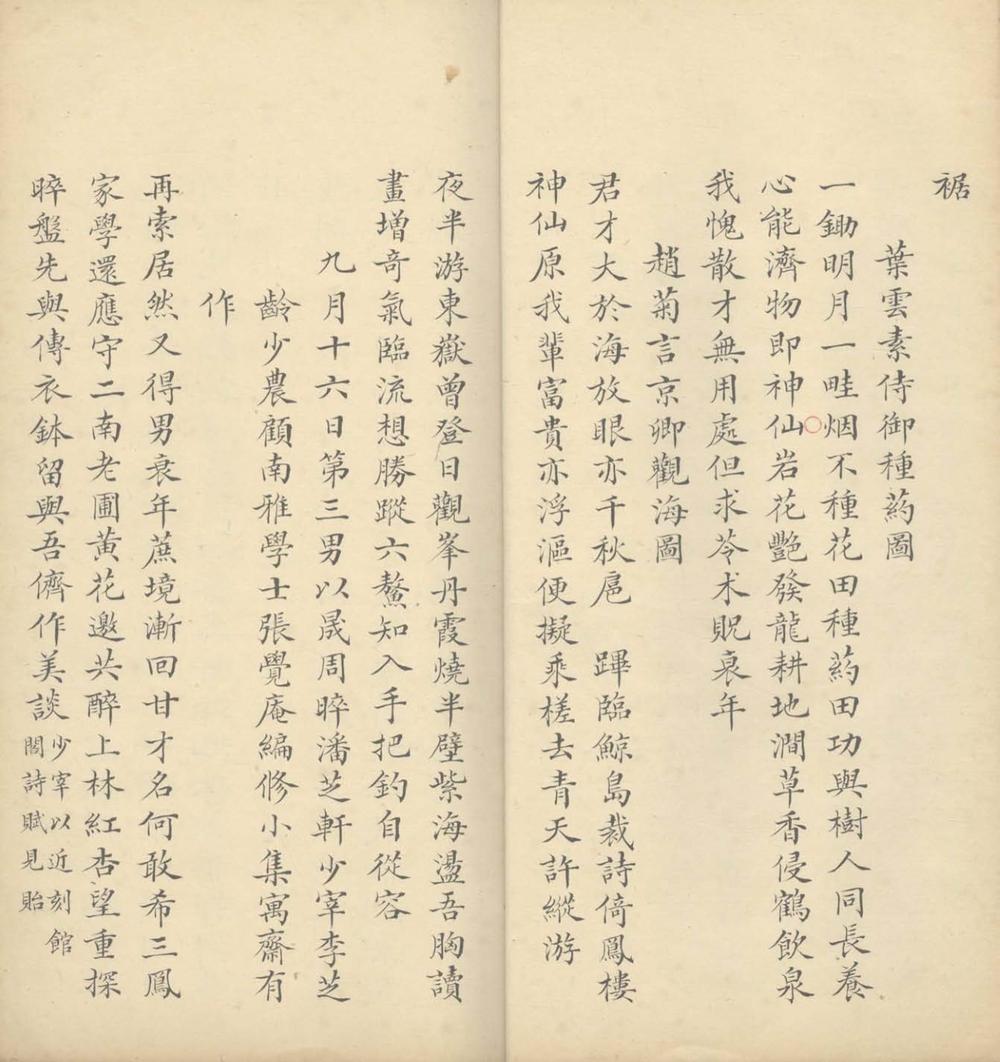 裾
葉雲素侍御種葯圖
一鋤明月一畦烟不種花田種葯田功與樹人同長養
心能濟物即神仙岩花艷發龍耕地澗草香侵鶴飲泉
我愧散才無用處但求苓朮貺衰年
趙菊言京卿觀海圖
君才大於海放眼亦千秋扈蹕臨鯨島裁詩倚鳳樓
神仙原我輩富貴亦浮漚便擬乘槎去青天許縱游
夜半游東嶽曾登日觀峯丹霞燒半壁紫海盪吾胸讀
畫增奇氣臨流想勝蹤六鰲知入手把釣自從容
九月十六日第三男以晟周晬潘芝軒少宰李芝
齡少農顧南雅學士張覺庵編修小集寓齋有
作
再索居然又得男衰年蔗境漸回甘才名何敢希三鳳
家學還應守二南老圃黃花邀共醉上林紅杏望重探
晬盤先與傳衣鉢留與吾儕作美談少宰以近刻館
閣詩賦見貽